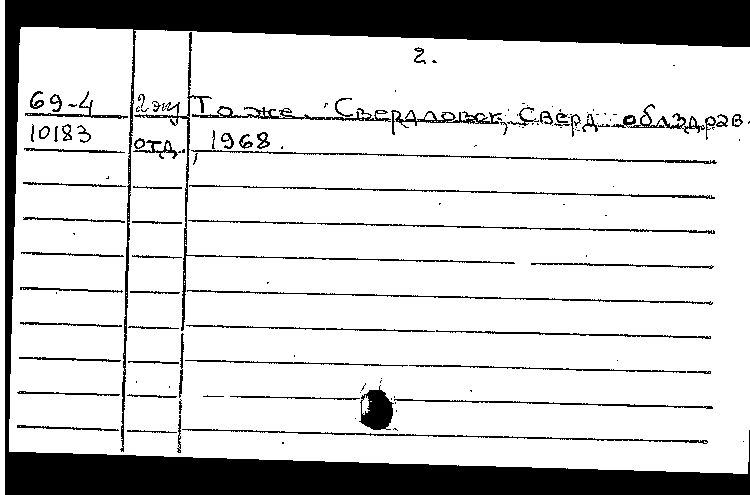 2.
69-4 2 экз То же. Свердловск, Сверд. облздрав.
10183 отд., 1968.